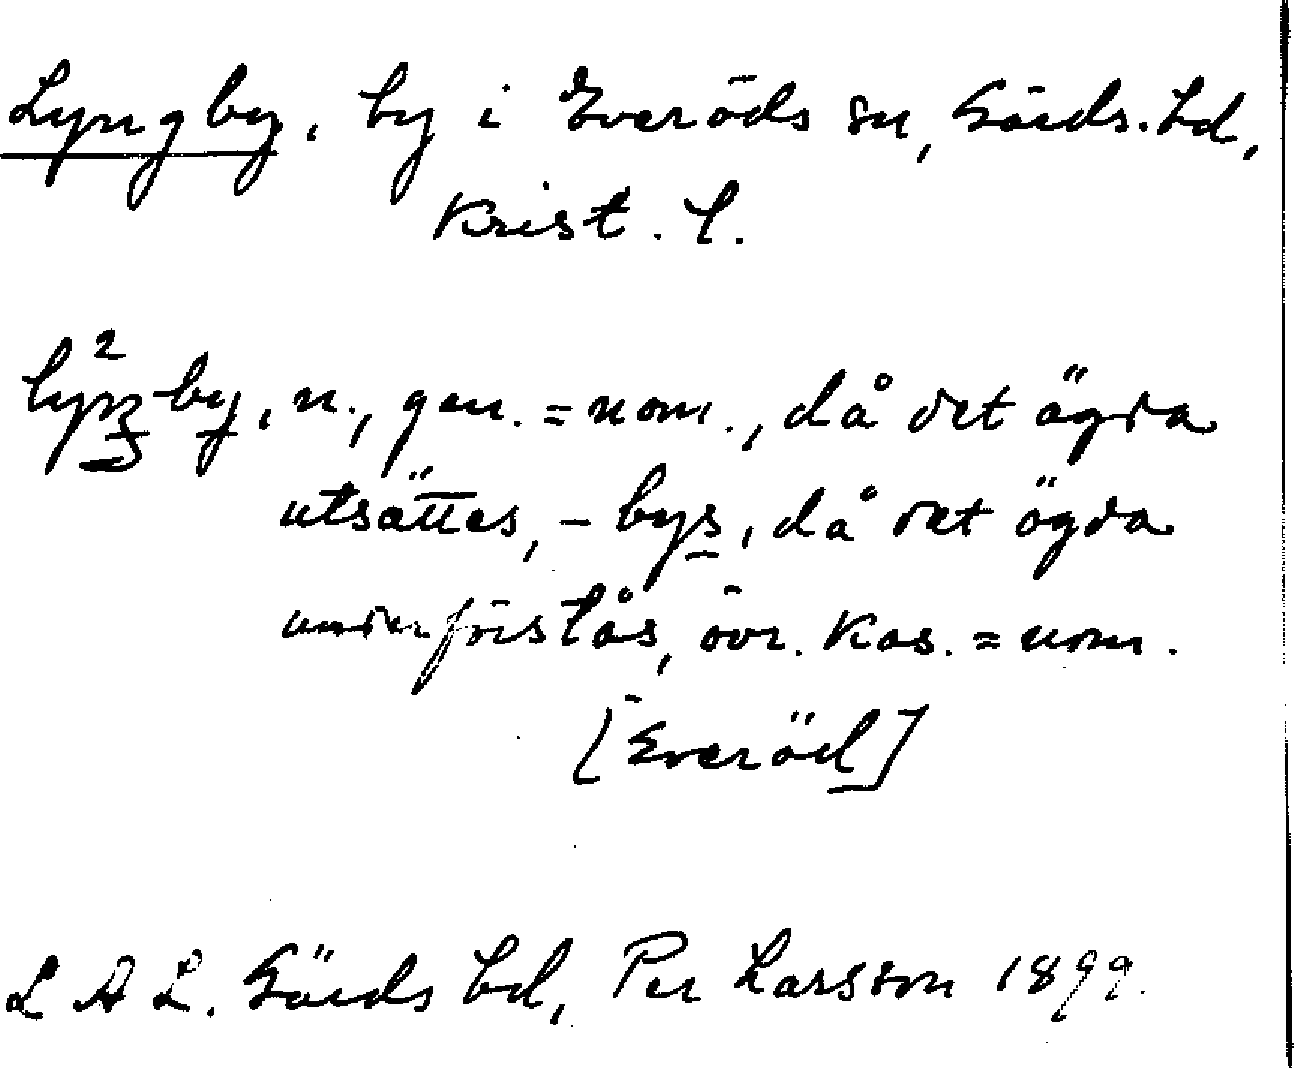 Lyngby, by i Everöds sn, Gärds. hd,
Krist. l.
by, n., gen. = nom., då det ägda
utsättes, - bys, då det ägda
underförstås, övr. kas. = nom.
[Everöd]
L A L. Gärds hd, Per Larsson 1899.